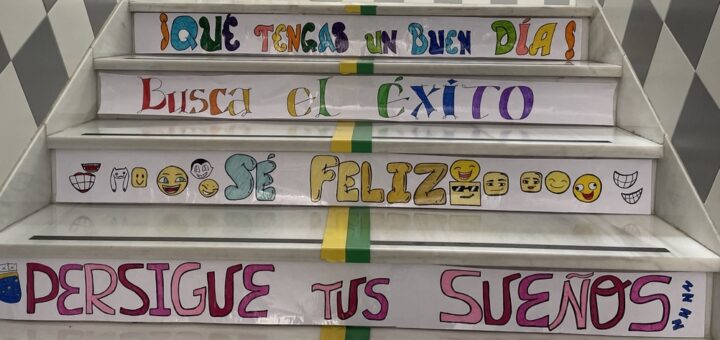 ¡QUE TENGAS UN BUEN DÍA!
Busca el éxito
SÉ FELIZ
PERSIGUE TUS SUEÑOS